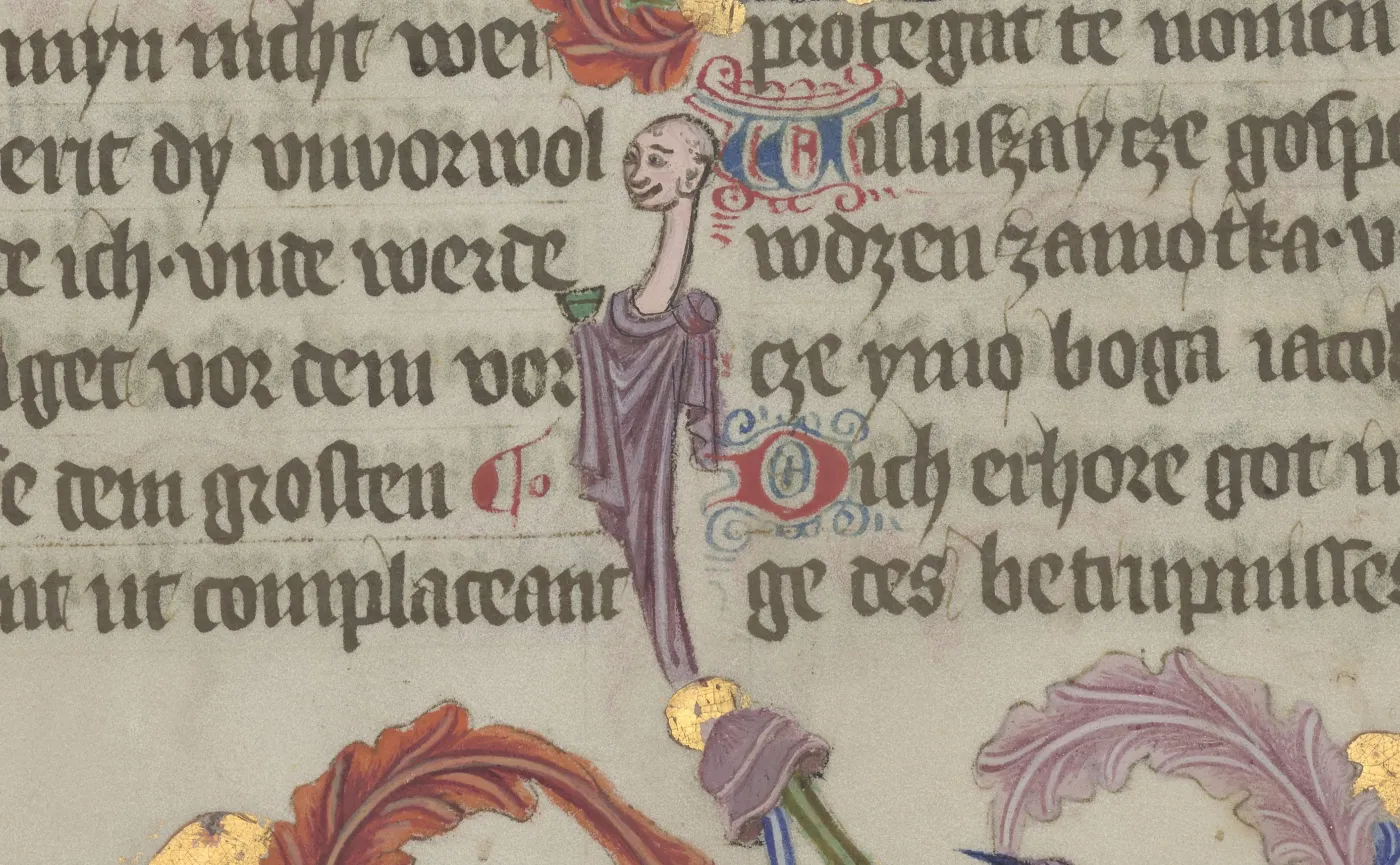 myn nicht wer
erit dy vnvorwol
de ich·vnde werde
iget vor dem vor
se dem grosten
nt ut complaceant
protegat te nomen
Uisluszay cze gospo
wdzen zamotka·v
cze ymo boga iacob
Dich erhore got
ge des betrupnisses